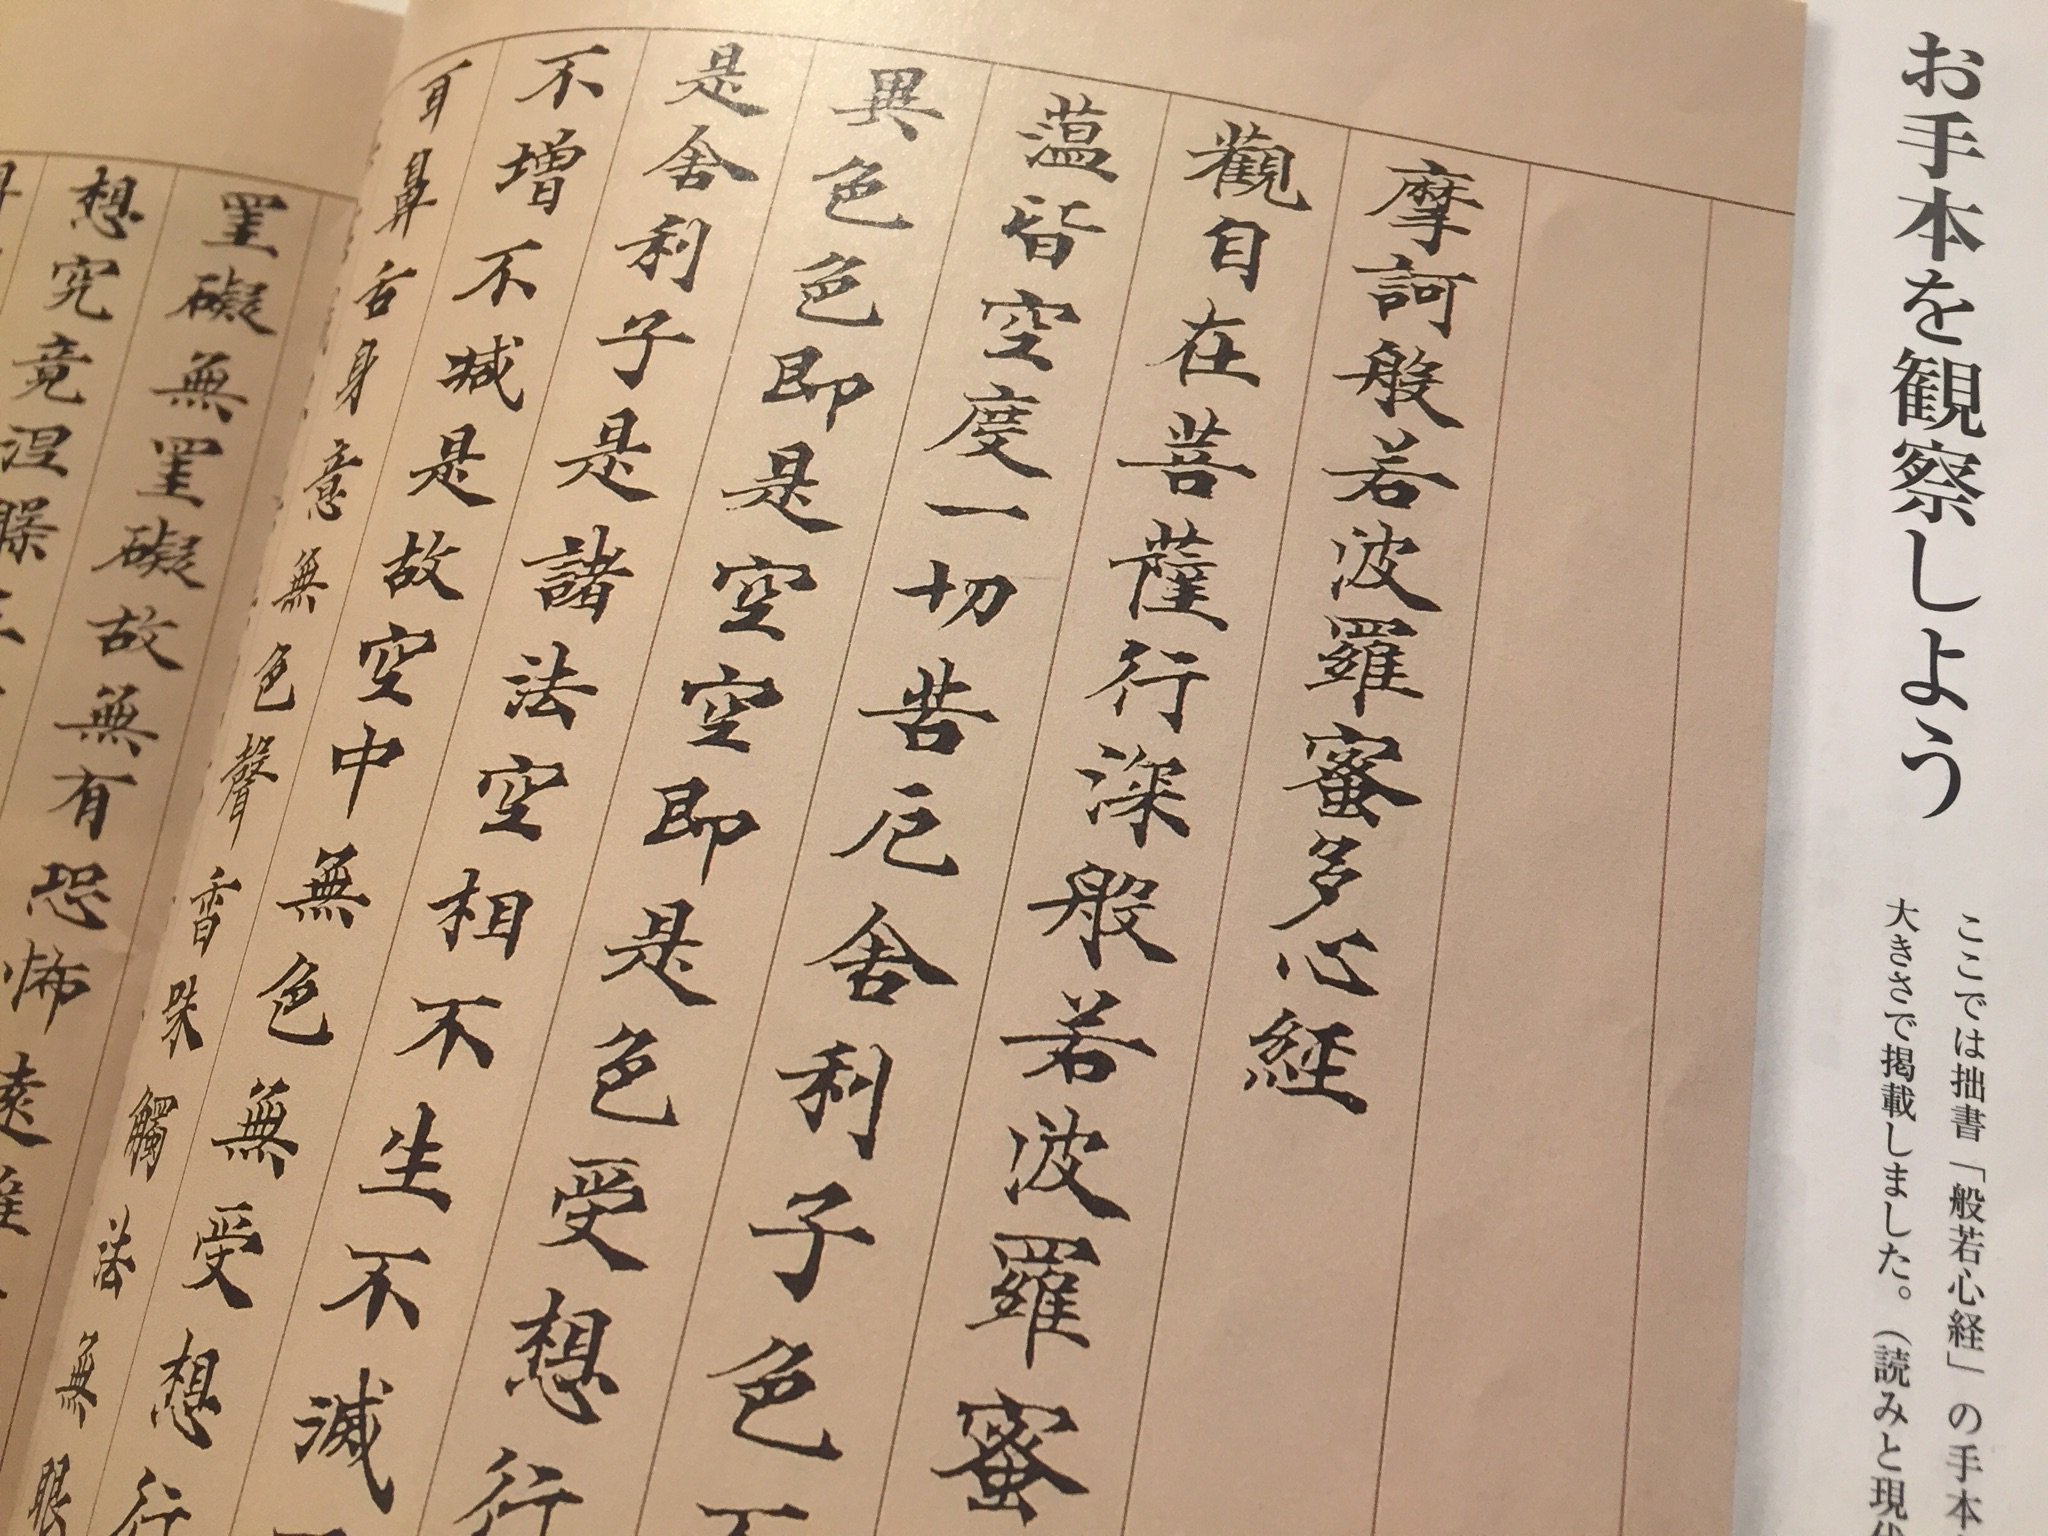 お手本を観察しよう
ここでは拙書「般若心経」の手本
大きさで掲載しました。（読みと現代
摩訶般若波羅蜜多心経
觀自在菩薩行深般若波羅蜜
蕰皆空度一切苦厄舎利子色不
異色色即是空空即是色受想行
是舎利子是諸法空相不生不滅
不增不減是故空中無色無受想行
耳鼻舌身意無色聲香味觸法無眼
罣礙無罣礙故無有恐怖遠離
想究竟涅槃